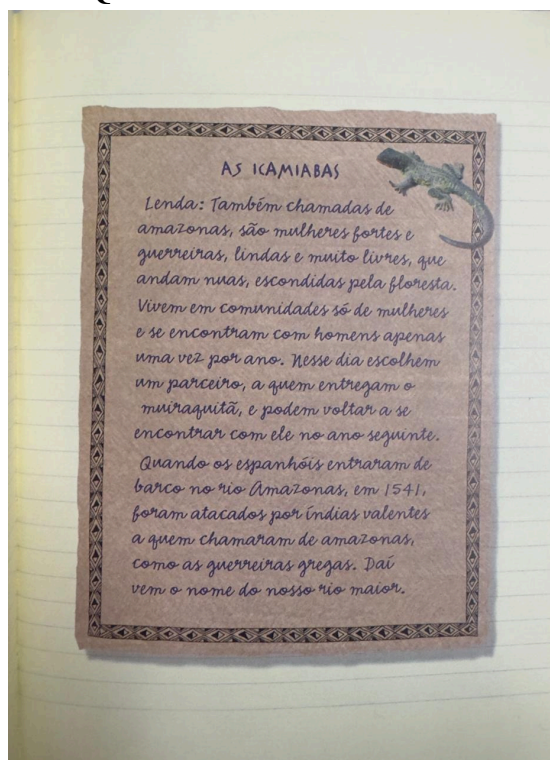 AS ICAMIABAS
Lenda: Também chamadas de
amazonas, são mulheres fortes e
guerreiras, lindas e muito livres, que
andam nuas, escondidas pela floresta.
Vivem em comunidades só de mulheres
e se encontram com homens apenas
uma vez por ano. Nesse dia escolhem
um parceiro, a quem entregam o
muiraquitã, e podem voltar a se
encontrar com ele no ano seguinte.
Quando os espanhóis entraram de
barco no rio Amazonas, em 1541,
foram atacados por índias valentes
a quem chamaram de amazonas,
como as guerreiras gregas. Daí
vem o nome do nosso rio maior.